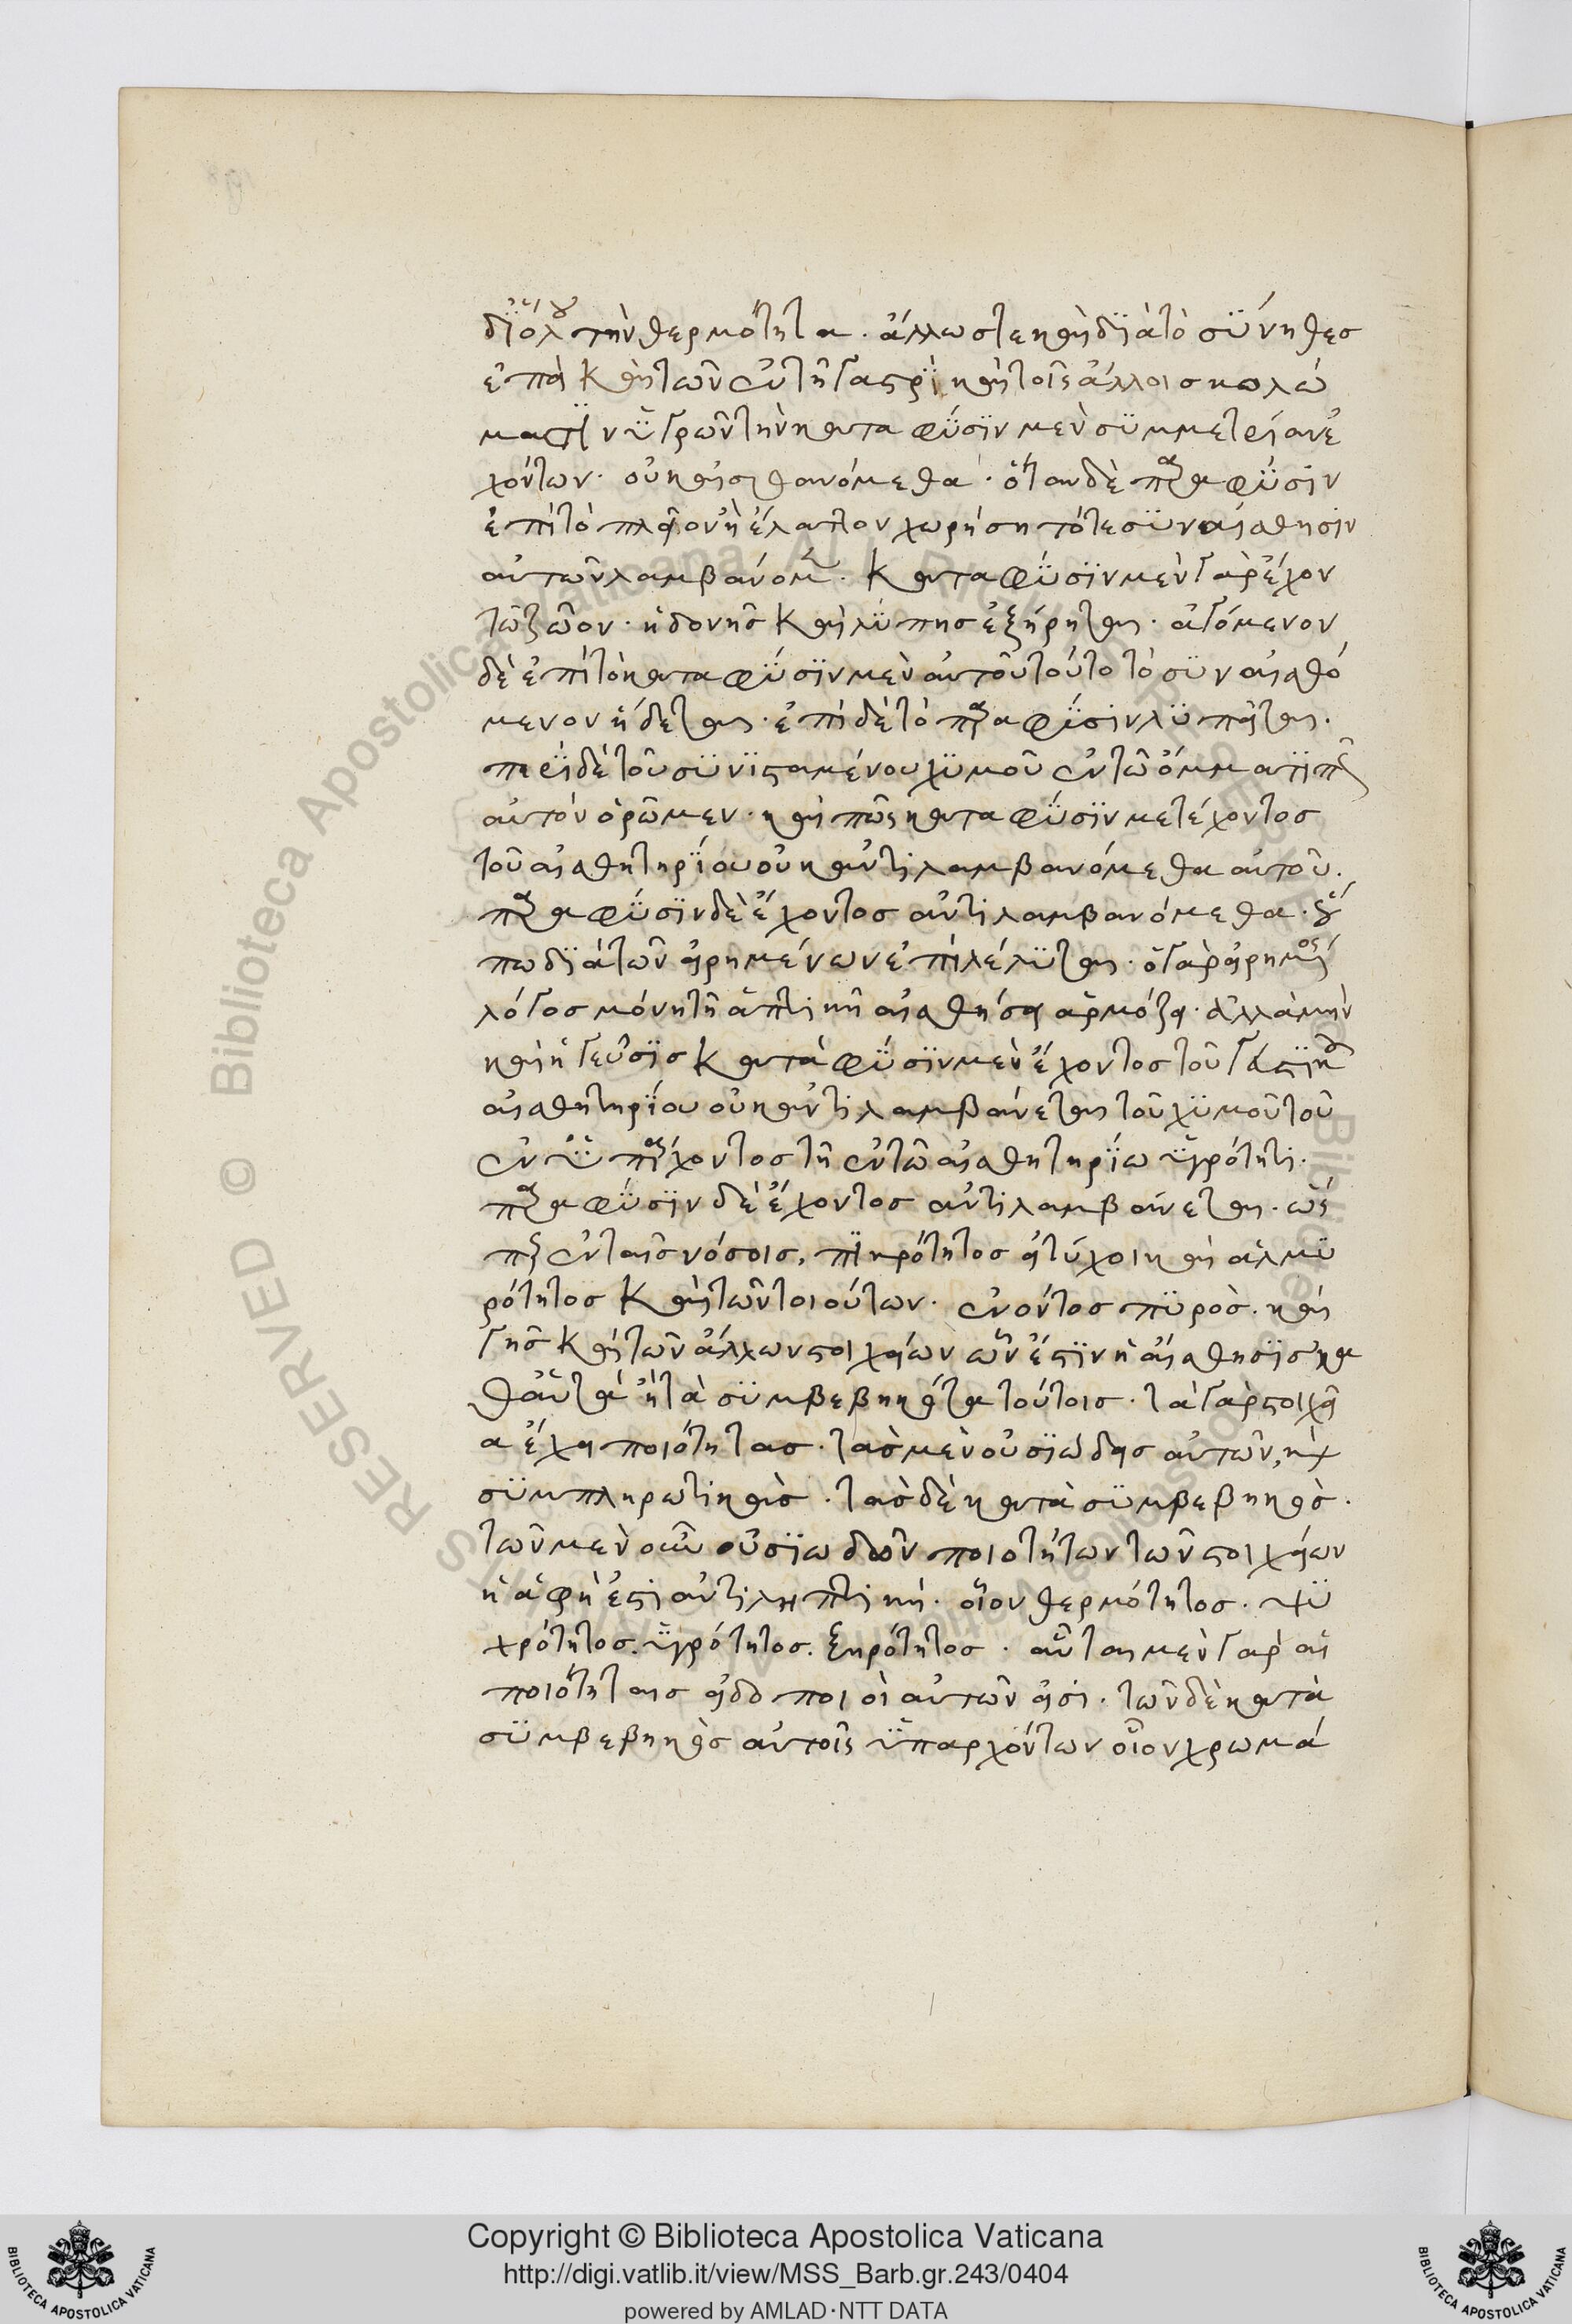 δι' ὅλου τὴν θερμότητα. ἄλλως τε καὶ διὰ τὸ σύνηθες
ἐπεὶ καὶ τῶν ἐν τῇ γαστρὶ καὶ τοῖς ἄλλοις κολώ
μασιν ὑγρῶν τὴν κατα φύσιν μὲν συμμετρίαν ἐ
χόντων. οὐκ αἰσθανόμεθα. ὅταν δὲ παρα φύσιν
ἐπὶ τὸ πλεῖον ἢ ἔλαττον χωρήση τότε συναίσθησιν
αὐτῶν λαμβάνομεν. κατα φύσιν μὲν γὰρ ἔχον
τὸ ζῶον. ἡδονῆς καὶ λύπης ἐξήρηται. ἀγόμενον
δὲ ἐπὶ τὸ κατα φύσιν μὲν αὐτοῦ τούτο τὸ συναισθό
μενον ἥδεται. ἐπὶ δὲ τὸ παρα φύσιν λυπεῖται.
περὶ δὲ τοῦ συνισταμένου χυμοῦ ἐν τῶ ὄμματι πῶς
αὐτὸν ὁρῶμεν. καὶ πῶς κατα φύσιν μετέχοντος
τοῦ αἰσθητηρίου οὐκ ἀντιλαμβανόμεθα αὐτοῦ.
παρα φύσιν δὲ ἔχοντος ἀντιλαμβανόμεθα. οὔ
πω διὰ τῶν εἰρημένων ἐπιλέλυται. ὁ γὰρ εἰρημένος
λόγος μόνη τῆ ἁπτικῆ αἰσθήσει ἁρμόζει. ἀλλὰ μὴν
καὶ ἡ γεῦσις κατὰ φύσιν μὲν ἔχοντος τοῦ γευστικοῦ
αἰσθητηρίου οὐκ ἀντιλαμβάνεται τοῦ χυμοῦ τοῦ
ἐνυπάρχοντος τῆ ἐν τῶ αἰσθητηρίω ὑγρότητι.
παρα φύσιν δὲ ἔχοντος ἀντιλαμβάνεται. ὥς
περ ἐν ταῖς νόσοις, πικρότητος εἰ τύχοι καὶ ἁλμυ
ρότητος καὶ τῶν τοιούτων. ἐνόντος πυρὸς. καὶ
γῆς καὶ τῶν ἄλλων στοιχείων ὧν ἐστὶν ἡ αἴσθησις κα
θ' αὑτά ἢ τὰ συμβεβηκότα τούτοις. τὰ γὰρ στοιχεῖ
α ἔχει ποιότητας. τὰς μὲν οὐσιώδεις αὐτῶν, καὶ
συμπληρωτικὰς. τὰς δὲ κατὰ συμβεβηκὸς.
τῶν μὲν οὖν οὐσιωδῶν ποιοτήτων τῶν στοιχείων
ἡ ἁφὴ ἐστὶ ἀντιληπτικὴ. οἷον θερμότητος. ψυ
χρότητος. ὑγρότητος. ξηρότητος. αὗται μὲν γαρ αἱ
ποιότηταις εἰδοποιοὶ αὐτῶν εἰσὶ. τῶν δὲ κατὰ
συμβεβηκὸς αὐτοῖς ὑπαρχόντων οἷον χρωμά
Copyright © Biblioteca Apostolica Vaticana
http://digi.vatlib.it/view/MSS_Barb.gr.243/0404
powered by AMLAD·NTT DATA